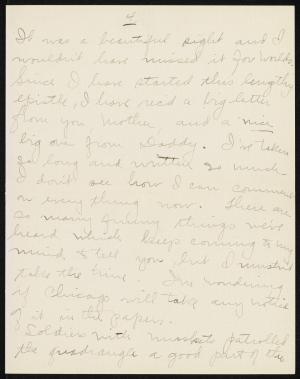 4
It was a beautiful sight and I
wouldn't have missed it for worlds.
Since I have started this lengthy
epistle, I have rec'd a big letter
from you Mother, and a nice
big one from Daddy. I've taken
so long and written so much
I don't see how I can comment
on everything now. There are
so many funny things we've
heard which keeps coming to my
mind to tell you but I mustn't
take the time. I'm wondering
if Chicago will take any notice
of it in the papers.
Soldiers with muskets patrolled
the quadrangle a good part of the